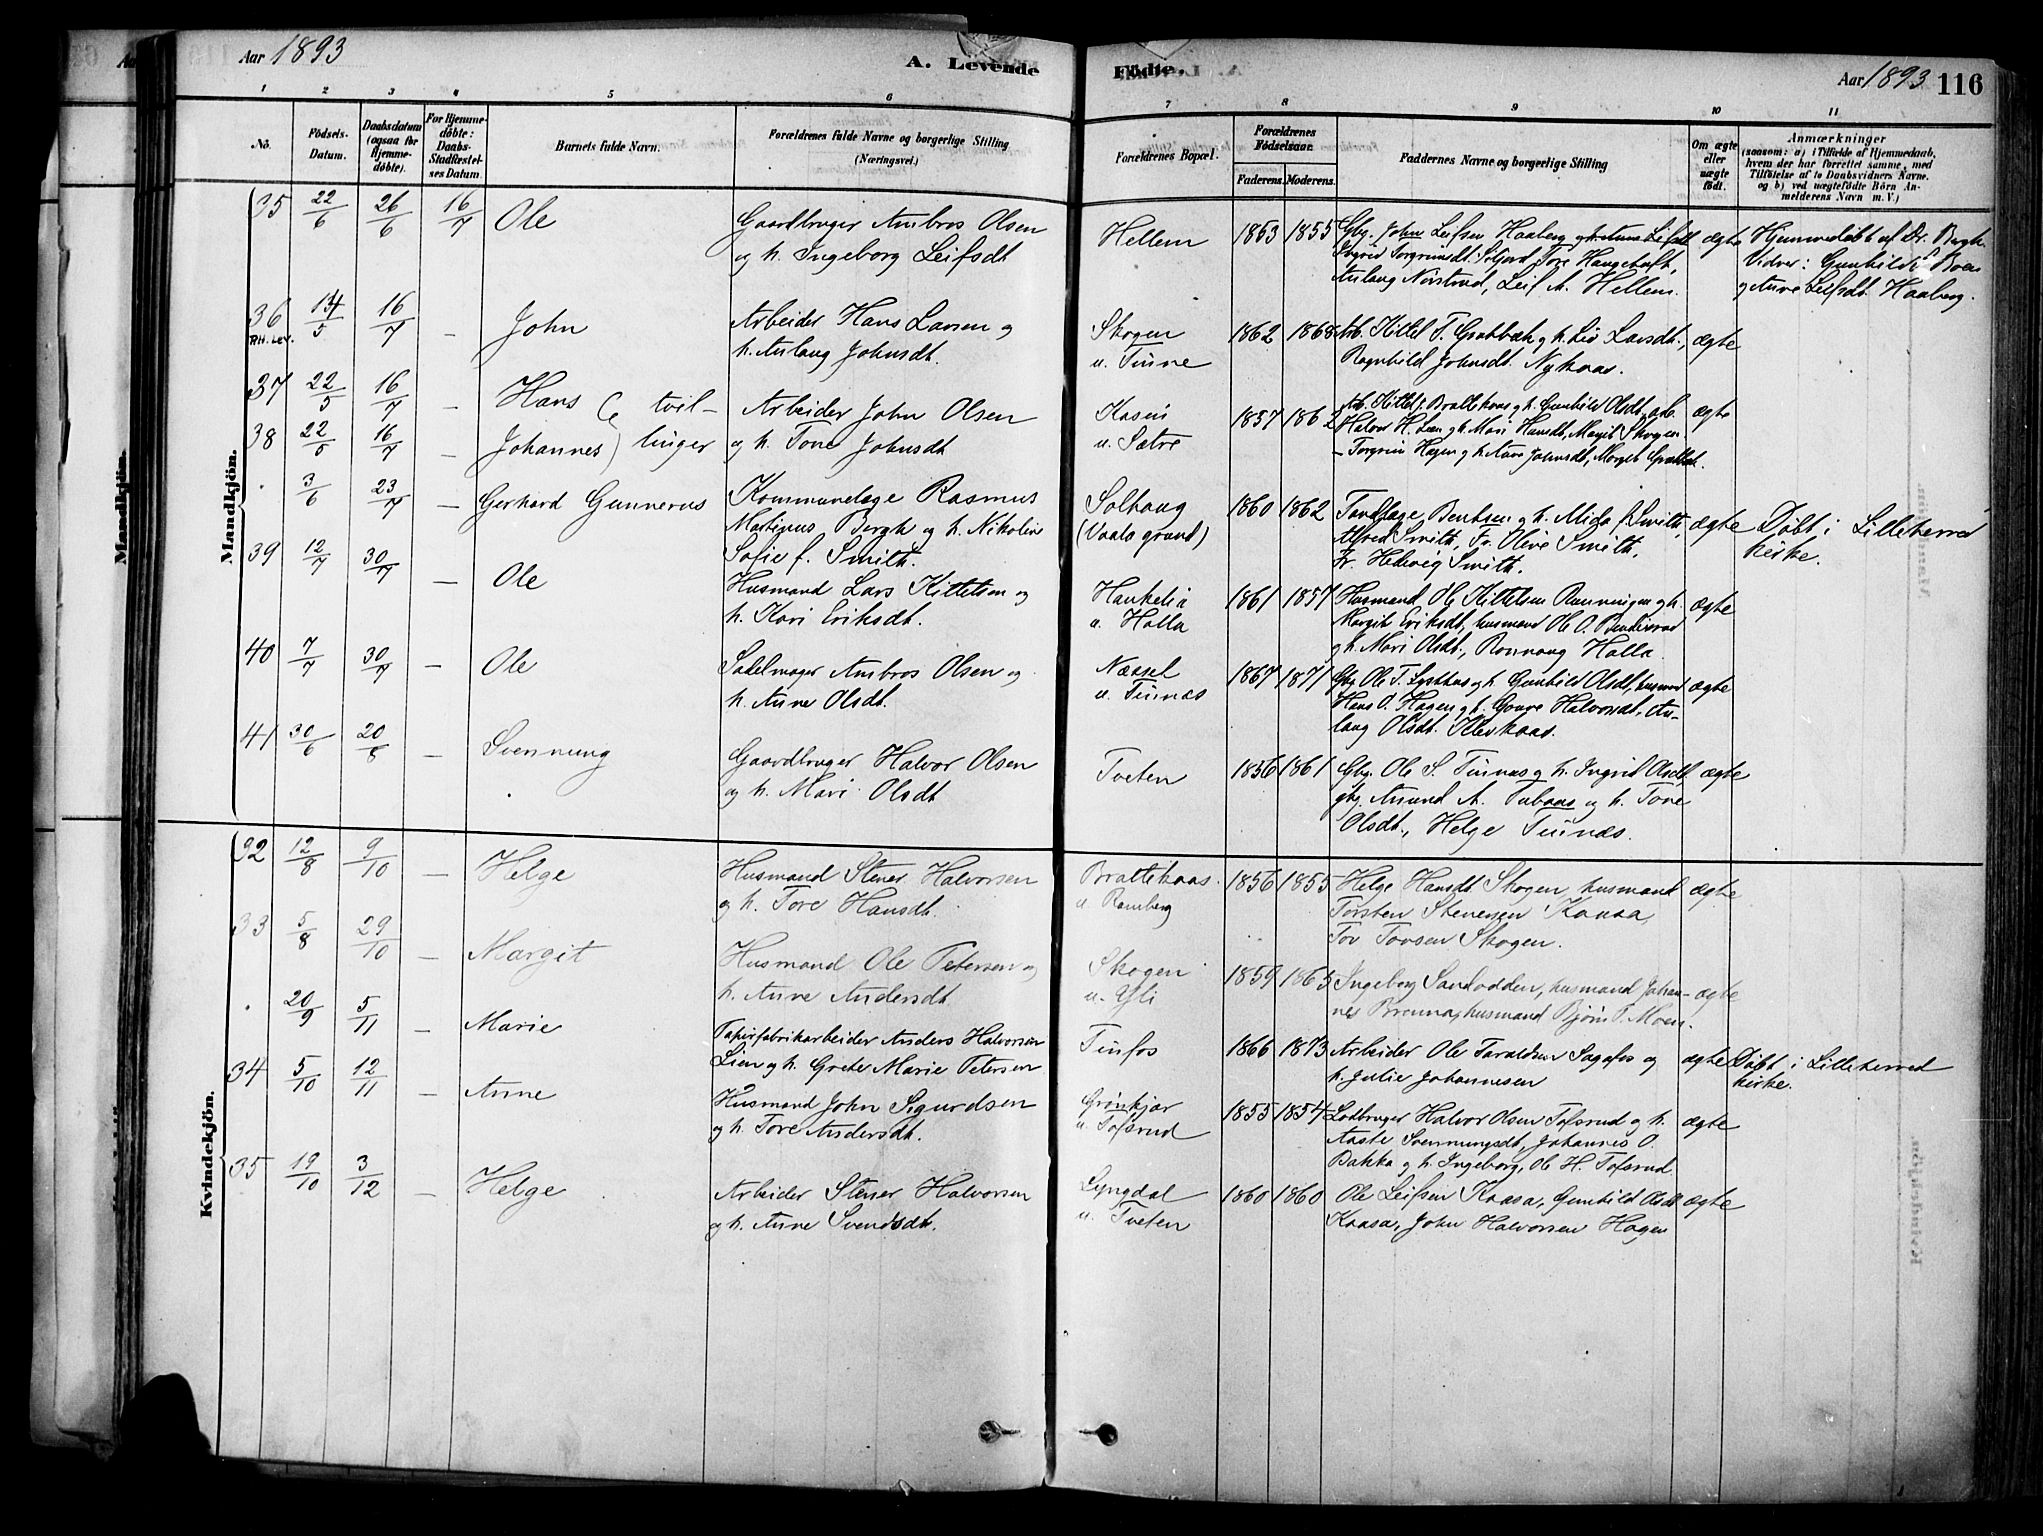 Aar 1893
A. Levende
Fødte.
Aar 1893 116
1 2 3 4 5 6 7 8 9 10 11
No.
Fødsels-
Datum.
Daabsdatum
(ogsaa for
Hjemme-
døbte).
For Hjemme-
døbte:
Daabs-
Stadfæstel-
ses Datum.
Barnets fulde Navn.
Forældrenes fulde Navne og borgerlige Stilling
(Næringsvei.)
Forældrenes Bopæl.
Forældrenes
Fødselsaar.
Faderens. Moderens.
Faddernes Navne og borgerlige Stilling
Om ægte
eller
uægte
født.
Anmærkninger
(saasom: a) i Tilfælde af Hjemmedaab,
hvem der har forrettet samme, med
Tilføielse af to Daabsvidners Navne,
og b) ved uægtefødte Børn An-
melderens Navn m. V.)
Mandkjön.
35 22/6 26/6 16/7 Ole
Gaardbruger Ambros Olsen
og h. Ingeborg Leifsdt
Hellem 1863 1855
Gbg. John Leifsen Haaberg og h. Anne Leifsdt
Torgrimsdt. Tore
Aslaug Nirstrud, Leif A. Hellem.
ægte
Hjemmedøbt af Dr. Bergh.
Vidner: Gunhild Boen
og Anne Leifsdt. Haaberg.
36 14/5 16/7 – John
RH. LEV.
Arbeider Hans Larsen og
h. Aslaug Johnsdt.
Skogen
u. Tinne
1862 1868
Arb. Kittel T. Grøtbæk og h. Liv Larsdt.,
Ragnhild Johnsdt. Nykaas.
ægte
37 22/5 16/7 – Hans
38 22/5 16/7 – Johannes
tvil-
linger
Arbeider John Olsen
og h. Tone Johnsdt
Kasin
u. Sætre
1857 1862
Arb. Kittel J. Brattekaas og h. Gunhild Olsdt, arb.
Halvor H. Lien og h. Mari Hansdt, Margit Skogen.
– Torgrim Hagen og h. Anne Johnsdt, Margit
ægte
3/6 23/7 – Gerhard Gunnerus
Kommunelæge Rasmus
Martinus Bergh og h. Nikoline
Sofie f. Smith.
Solhaug
(Vaala grund)
1860 1862
Tandlæge Bentsen og h. Mida f. Smith,
Alfred Smith, Fr. Olive Smith,
Fr. Hedevig Smith.
ægte
Døbt i Lilleherred
kirke.
39 12/7 30/7 – Ole
Husmand Lars Kittelsen og
h. Kari Eriksdt.
Haukelia
u. Holla
1861 1857
Husmand Ole Kittelsen Rønningen og h.
Margit Eriksdt, husmand Ole O.
og h. Mari Olsdt., Rønnaug Holla.
ægte
40 7/7 30/7 – Ole
Sadelmager Ambros Olsen og
h. Anne Olsdt.
Næsset
u. Tinnæs
1867 1871
Gbg. Ole T. Lysthus og h. Gunhild Olsdt, husmand
Hans O. Hagen og h. Gunve Halvorsdt, As-
laug Olsdt. Klevkaas.
ægte
41 30/6 20/8 – Svennung
Gaardbruger Halvor Olsen
og h. Mari Olsdt
Tveten 1856 1861
Gbg. Ole S. Tinnæs og h. Ingrid Olsdt,
gbg. Amund A. Tubaas og h. Tone
Olsdt., Helge Tinnæs.
ægte
Kvindekjön.
32 12/8 9/10 – Helge
Husmand Stener Halvorsen
og h. Tore Hansdt.
Brattekaas
u. Ramberg
1856 1855
Helge Hansdt. Skogen, husmand
Torsten Stenersen Kaasa,
Tov Tovsen Skogen.
ægte
33 5/8 29/10 – Margit
Husmand Ole Petersen og
h. Anne Andersdt.
Skogen
u. Yli
1859 1865
Ingeborg Sandodden, husmand Johan-
nes Brenna, husmand Bjørn T. Moen.
ægte
20/9 5/11 – Marie
Papirfabrikarbeider Anders Halvorsen
Lien og h. Grete Marie Petersen
Tinfos 1866 1873
Arbeider Ole Taraldsen Sagafos og
h. Julie Johannesen
ægte
Døbt i Lilleherred
kirke.
34 5/10 12/11 – Anne
Husmand John Sigurdsen
og h. Tore Andersdt.
Grønkjær
u. Tofsrud
1855 1854
Lodbruger Halvor Olsen Tofsrud og h.
Aaste Svennungsdt, Johannes O.
Bakka og h. Ingeborg, Ole H. Tofsrud
ægte
35 19/10 3/12 – Helge
Arbeider Stener Halvorsen
og h. Anne Svendsdt.
Lyngdal
u. Tveten
1860 1860
Ole Leifsen Kaasa, Gunhild Olsdt
Kaasa, John Halvorsen Hagen
ægte